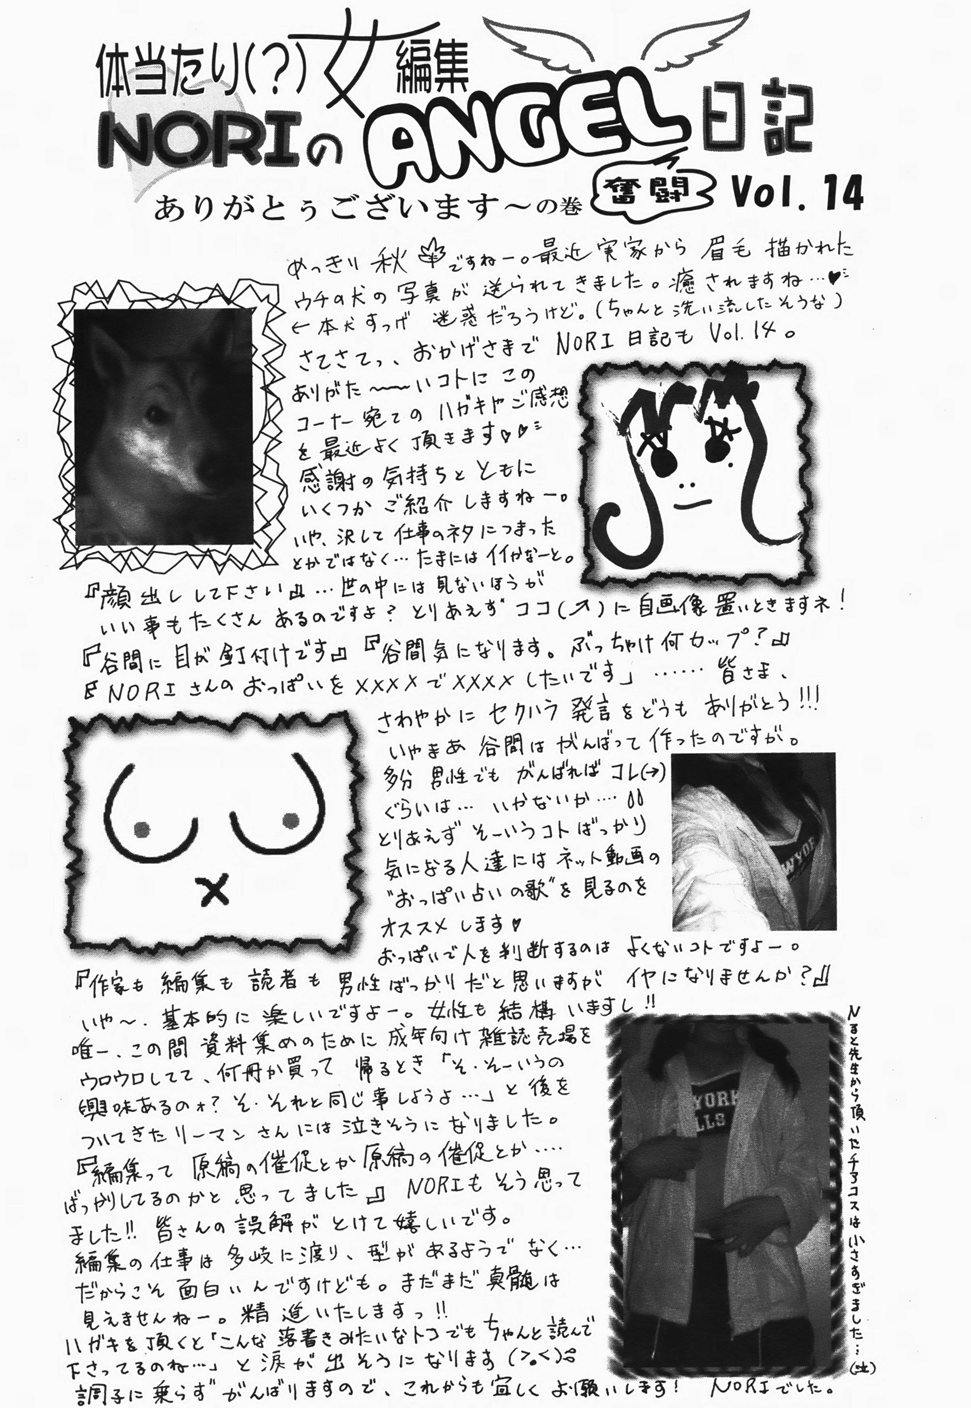 体当たり(?)女編集
NORIのANGEL日記
奮闘
Vol. 14
ありがとぅございます～の巻
めっきり秋ですねー。最近実家から眉毛描かれた
ウチの犬の写真が送られてきました。癒されますね…♥
←本犬すっげ迷惑だろうけど。(ちゃんと洗い流したそうな)
さてさてっ、おかげさまでNORI日記もVol.14。
ありがた〜〜いコトにこの
コーナー宛てのハガキやご感想
を最近よく頂きます♡♡
感謝の気持ちとともに
いくつかご紹介しますねー。
いや、決して仕事のネタにつまった
とかではなく…たまにはイイかなーと。
『顔出しして下さい』…世の中には見ないほうが
いい事もたくさんあるのですよ？とりあえずココ(↗)に自画像置いときますネ！
『谷間に目が釘付けです』『谷間気になります。ぶっちゃけ何カップ？』
『NORIさんのおっぱいをXXXXでXXXXしたいです」……皆さま、
さわやかにセクハラ発言をどうもありがとう!!!
いやまあ谷間はがんばって作ったのですが。
多分男性でもがんばればコレ(→)
ぐらいは…いかないか…
とりあえずそーいうコトばっかり
気になる人達にはネット動画の
"おっぱい占いの歌"を見るのを
オススメします♥
おっぱいで人を判断するのはよくないコトですよー。
『作家も編集も読者も男性ばっかりだと思いますがイヤになりませんか？』
いや〜、基本的に楽しいですよー。女性も結構いますし!!
唯一、この間資料集めのために成年向け雑誌売場を
ウロウロしてて、何冊か買って帰るとき「そ、そーいうの
興味あるのォ？そ、それと同じ事しようよ…」と後を
ついてきたリーマンさんには泣きそうになりました。
『編集って原稿の催促とか原稿の催促とか…
ばっかりしてるのかと思ってました』NORIもそう思って
ました!!皆さんの誤解がとけて嬉しいです。
編集の仕事は多岐に渡り、型があるようでなく…
だからこそ面白いんですけども。まだまだ真髄は
見えませんねー。精進いたしますっ!!
ハガキを頂くと「こんな落書きみたいなトコでもちゃんと読んで
下さってるのね…」と涙が出そうになります(>。<)
調子に乗らずがんばりますので、これからも宜しくお願いします！NORIでした。
NEW YORK
YORK
LLS
先生から頂いたチアコスは小さすぎました…(泣)